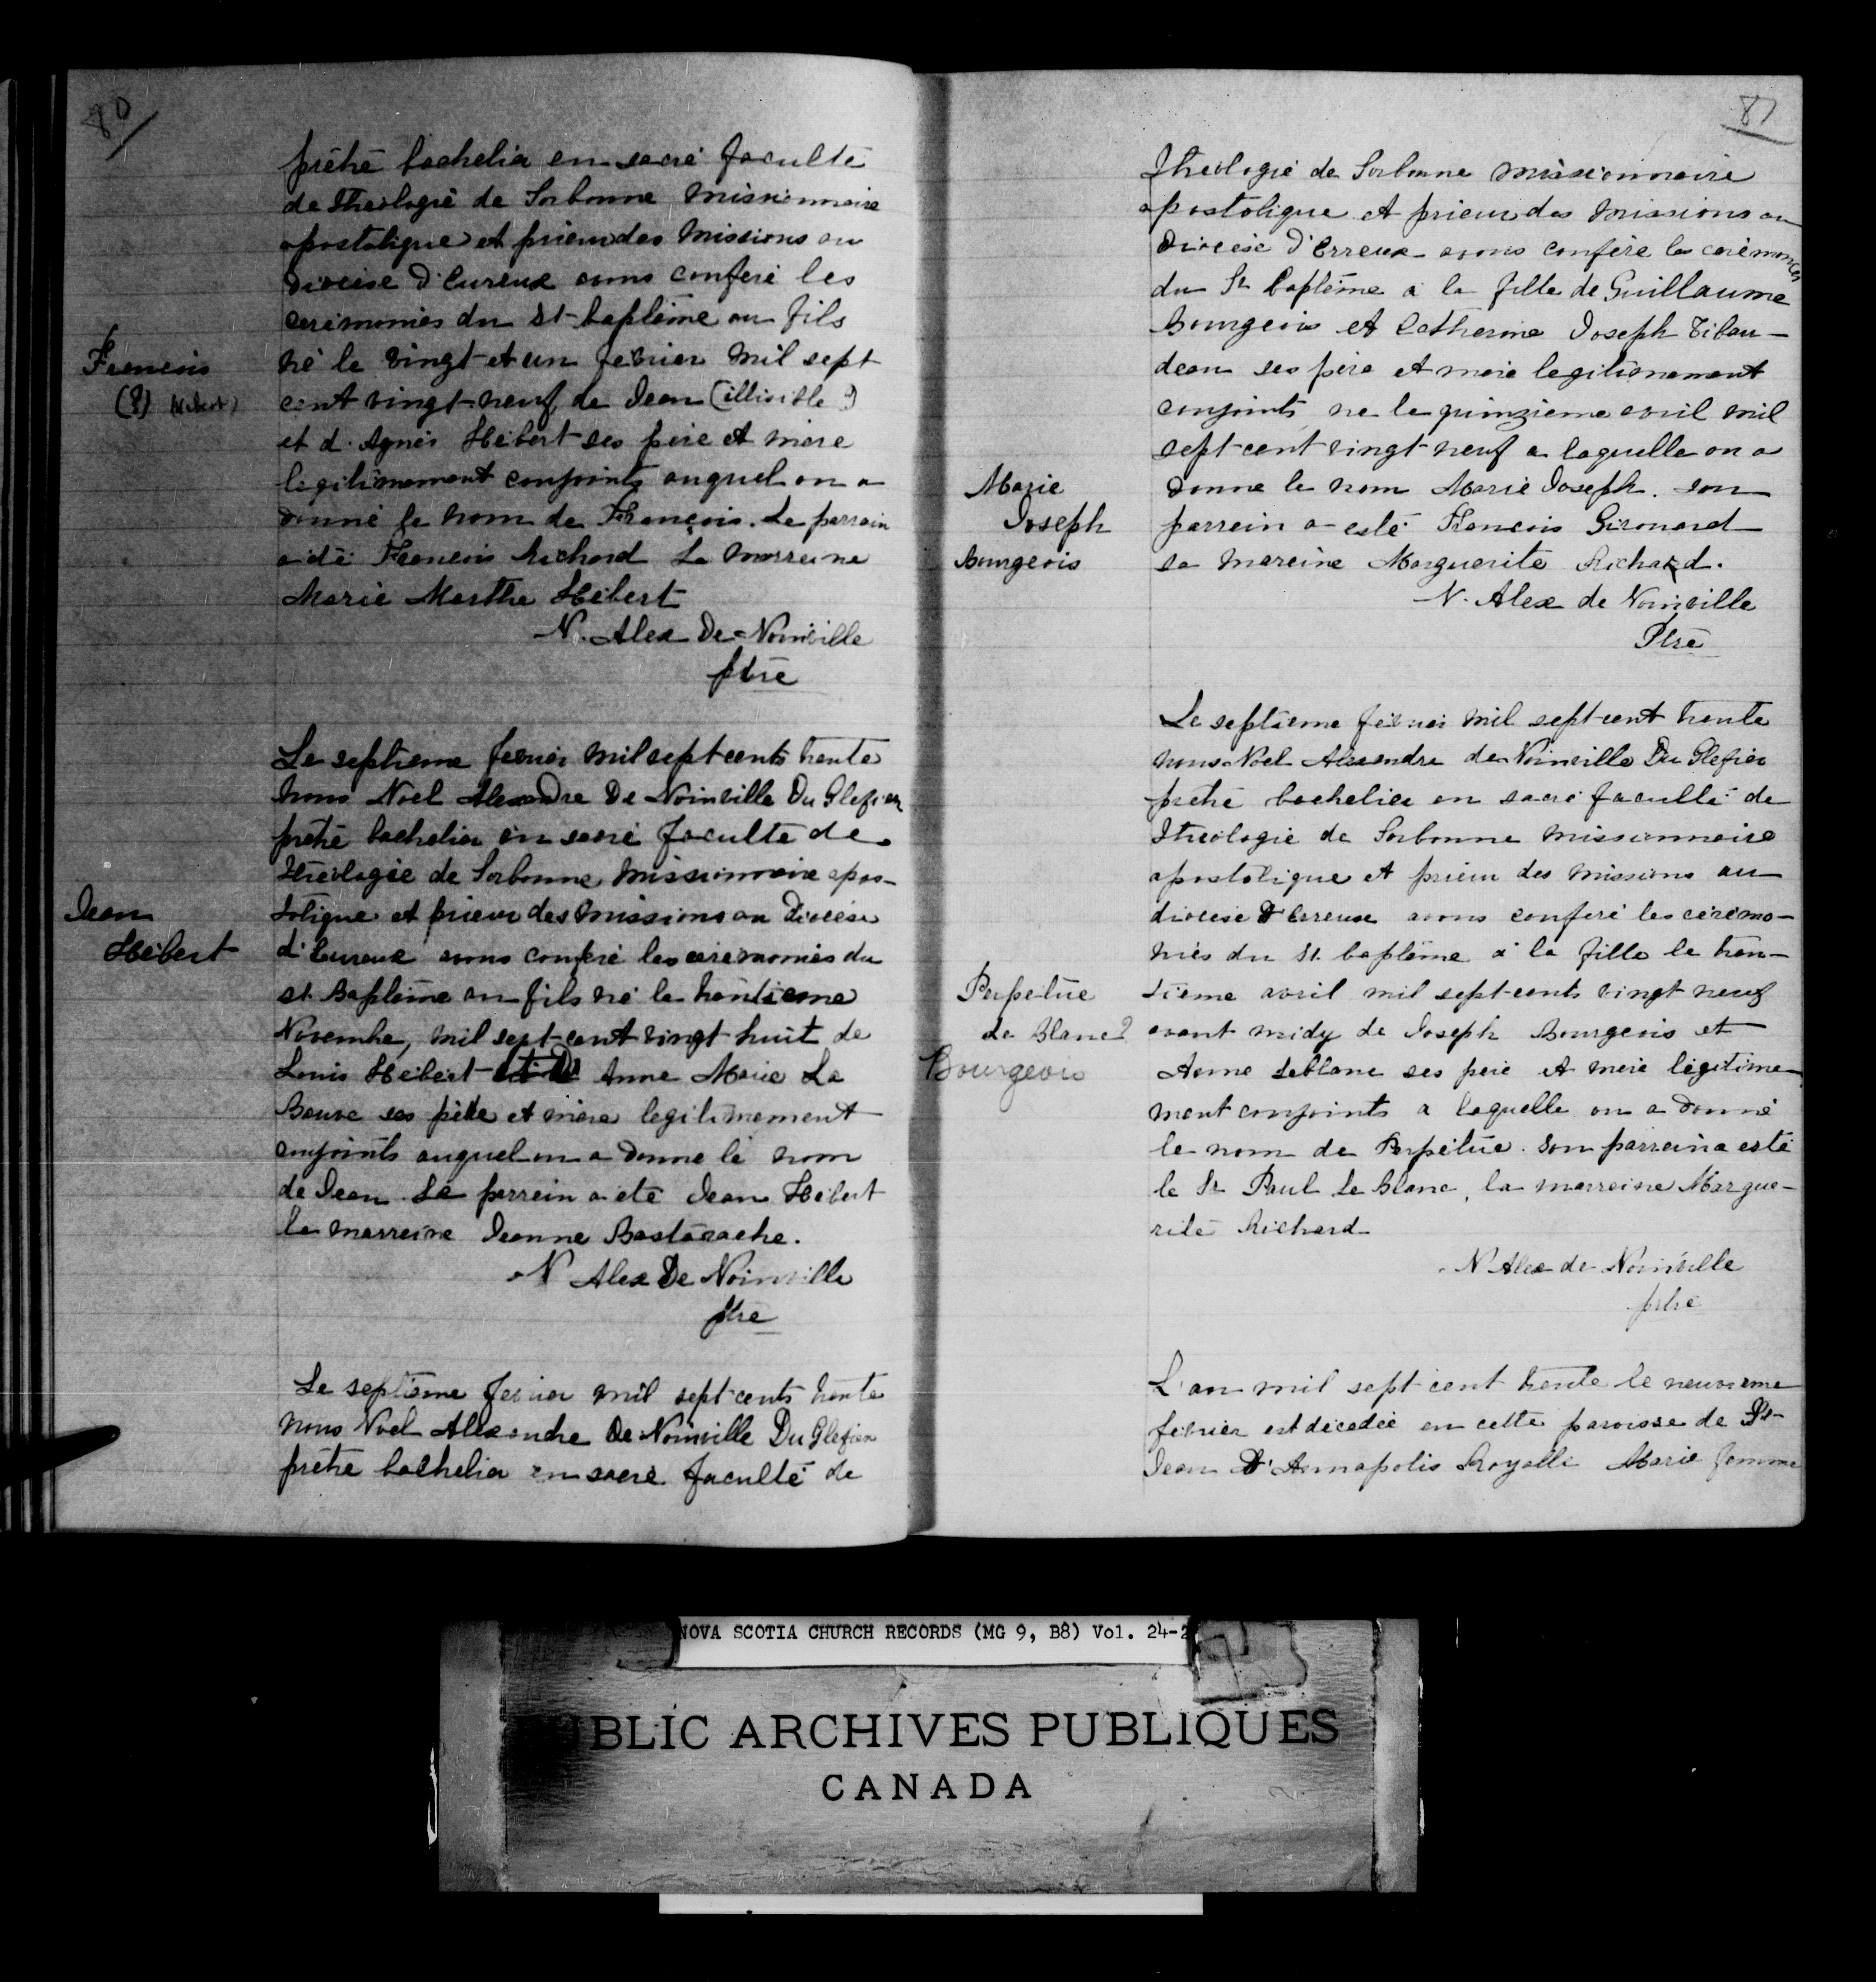 80
prêtré bachelier en sacré faculté
de Theologie de Sorbonne missionnaire
apostolique et prieur des Missions au
diocèse d'Eureux avons conféré les
cerémonies du St-baptême au fils
François
né le vingt-et un fevrier mil sept
(?) (Hebert)
cent vingt-neuf de Jean (illisible?)
et d. Agnès Hébert ses père et mère
legitimement conjoints auquel on a
donné le nom de François. Le parrain
a été François Richard La marreine
Marie Marthe Hébert
N. Alex De Noinville
ptre
Le septieme fevrier mil sept cents trente
nous Noel Alexandre De Noinville Du Glefien
prêtré bachelier en sacré faculté de
Théologie de Sorbonne, missionnaire apos-
Jean
tolique et prieur des missions au Diocése
Hébert
d'Eureux avons conféré les cérémonies du
st. Baptême au fils né le trentieme
Novembre, mil sept-cent vingt huit de
Louis Hébert Anne Marie La
Bauve ses père et mère legitimement
conjoints auquel on a donné le nom
de Jean. Le parrein a été Jean Hébert
la marreine Jeanne Bastarache.
N Alex De Noinville
ptre
Le septième fevrier mil sept cents trente
nous Noel Allexandre De Noinville Du Glefien
prêtre bachelier en sacré faculté de
81
Theologie de Sorbonne missionnaire
apostolique et prieur des missions au
Diocèse d'Evreux avons conféré les cerémonies
du St Baptême à la fille de Guillaume
Bourgeois et Catherine Joseph Tibau-
deau ses père et mère legitimement
conjoints ne le quinzieme avril mil
sept-cent vingt neuf a laquelle on a
Marie
donné le nom Marie Joseph. son
Joseph
parrein a esté François Girouard
Bourgeois
sa mareine Marguerite Richard.
N. Alex de Noinville
Ptre
Le septieme février mil sept-cent trente
nous Noel Alexandre de Noinville Du Glefien
prêtré bachelier en sacré faculté de
Theologie de Sorbonne missionnaire
apostolique et prieur des missions au
diocèse d'Evreux avons conféré les cérémo-
niés du St. baptême à la fille le tren-
Perpétue
tième avril mil sept-cents vingt neuf
Le Blanc?
avant midy de Joseph Bourgeois et
Bourgeois
Anne Leblanc ses père et mère légitime-
ment conjoints a laquelle on a donné
le nom de Perpétue. Son parrein a esté
le Sr Paul Le Blanc, la marreine Margue-
rite Richard
N Alex de Noinville
ptre
L'an mil sept cent trente le neuvieme
février est décedée en cette paroisse de St-
Jean D'Annapolis Royalle Marie femme
NOVA SCOTIA CHURCH RECORDS (MG 9, B8) Vol. 24-2
PUBLIC ARCHIVES PUBLIQUES
CANADA